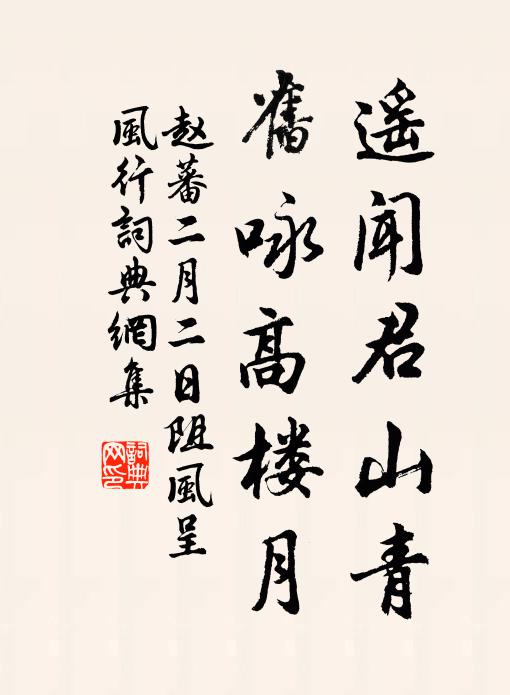 遥闻君山青
舊咏高楼月
赵蕃二月二日阻风呈
風行詞典網集
詞典
网印